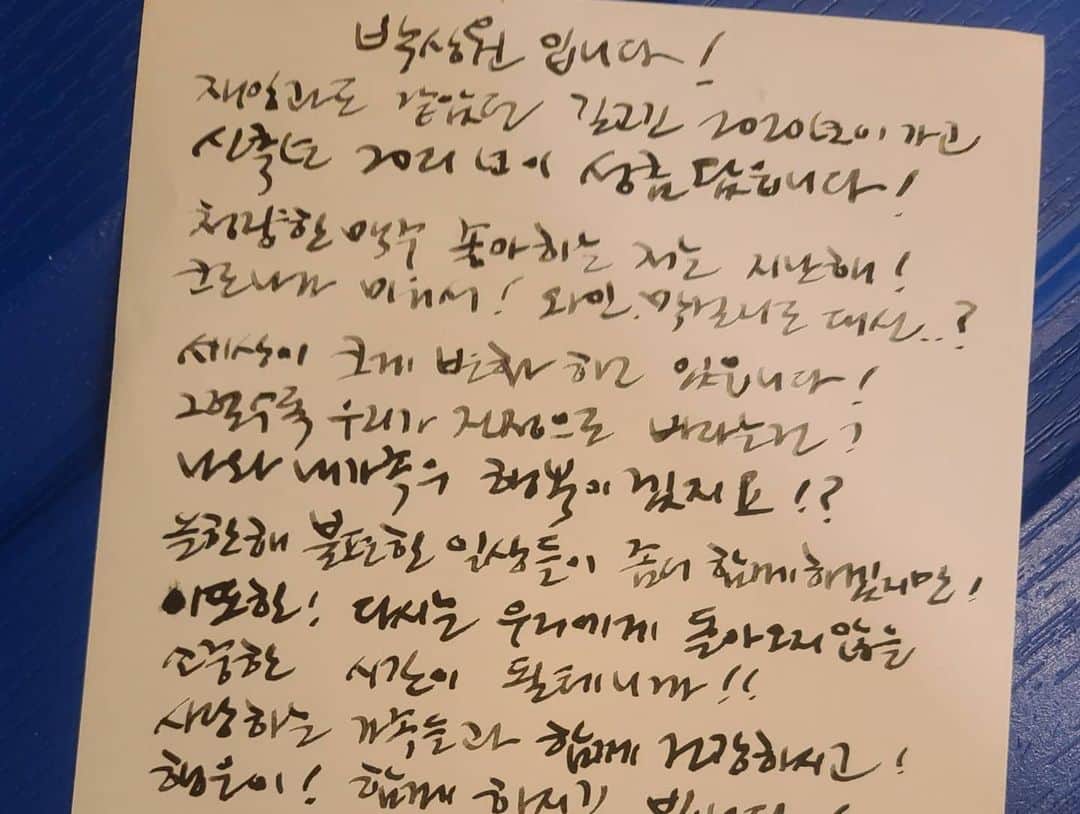 박상원 입니다!
재앙과도 같았던 길고긴 2020년이 가고
신축년 2021년이 성큼 닿습니다!
청량한 맥주 좋아하는 저는 지난해!
코로나가 미워서! 와인.막걸리로 대신..?
세상이 크게 변화 하고 있습니다!
그럴수록 우리가 진정으로 바라는건?
나와 내가족의 행복이겠지요!?
올한해 불편한 일상들이 좀더 함께하겠지만!
이또한! 다시는 우리에게 돌아오지않을
소중한 시간이 될테니까!!
사랑하는 가족들과 함께 건강하시고!
행운이! 함께 하시기